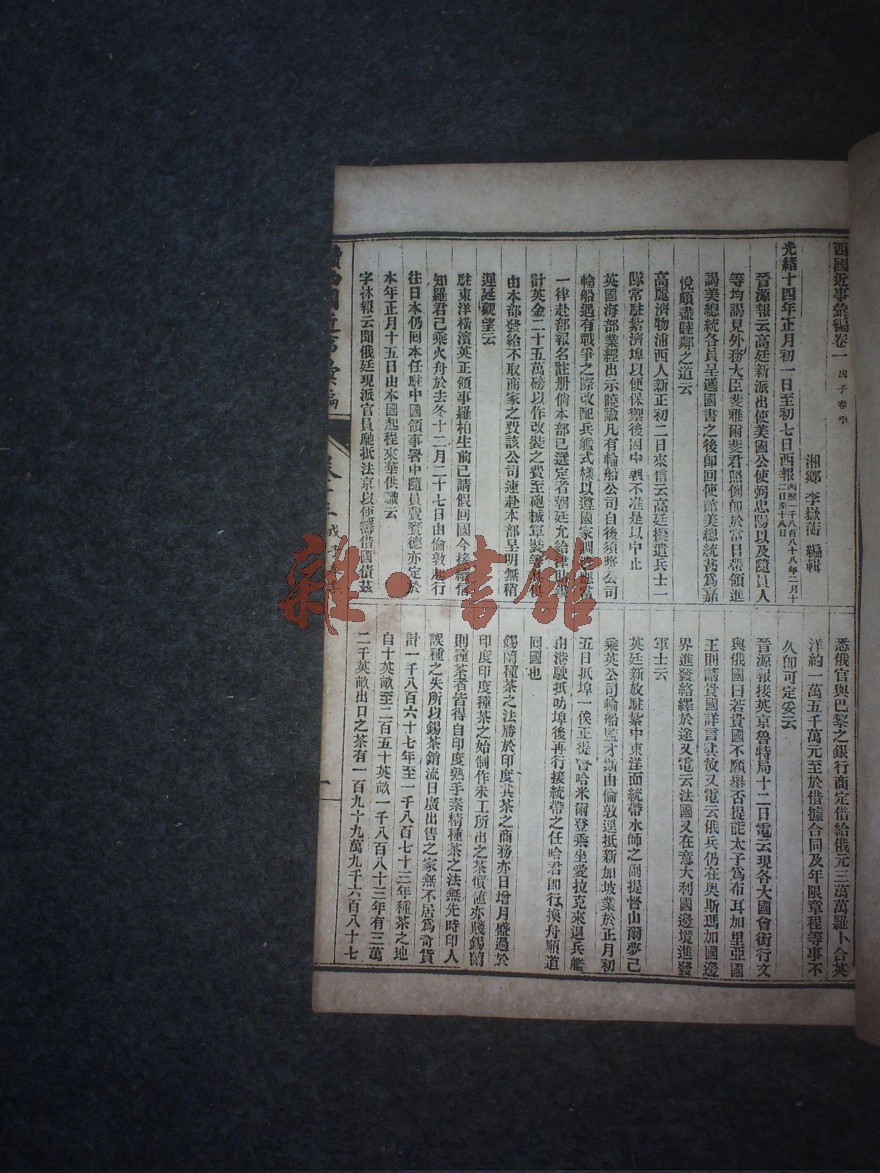 西國近事彙編卷一 戊子春季
湘鄉 李嶽蘅 編輯
光緒十四年正月初一日至初七日西報 西曆一千八百八十八年二月十二日至十八日
晉源報云高廷新派出使美國公使朔忠陽以及隨員人
等均謁見外務大臣斐雅爾斐君照例卽於當日帶領進
謁美總統各員呈遞國書之後卽回使館美總統書爲嘉
悅頗盡睦鄰之道云
高麗濟物浦西人新正初二日來信云高廷擬遣兵士一
隊常駐紮濟埠以便保禦後因中朝不准是以中止
英國海部業經出示曉諭凡有輪船公司自後須將公司
輪船遇有戰爭之際改配兵艦式樣以遵國家調
一律赴部報名註册倘本部已選定者朝廷允給
計英金二十五萬磅以作改裝之費至砲械軍裝等
由本部發給不取商家之費該公司速赴本部呈明無稍
遲延觀望云
駐東洋橫濱英正領事羅柏生前已請假回國今接
知羅君已乘火舟於去冬十二月二十七日由倫敦起行
往日本仍回本任駐中國領事署中隨員費賚德亦定於
本年正月十五日由本國起程來華供職云
字林報云聞俄廷現派官員馳抵法京以便籌借國債茲
悉俄官與巴黎之銀行商定借給俄元三萬萬羅卜合英
洋約一萬五千萬元至於借據合同及年限章程等事不
久卽可定妥云
晉源報接英京魯特局十二日電云現各大國會銜行文
與俄國曰若貴國不願舉否提說太子爲布耳加里亞國
王則請貴國詳言其故又電云俄兵仍在奧斯瑪加國邊
界進發絡繹於途又電云法國又在意大利國邊境進發
軍士云
英廷新放駐紮中東洋面統帶水師之副提督山爾夢已
乘英公司輪船 由倫敦逕抵新加坡業於正月初
五日抵埠一俟正提督哈米爾登乘坐愛拉克來退兵艦
由港駛抵叻埠後再行接統帶之任哈君卽行換舟順道
回國也
錫蘭種茶之法勝於印度其茶之商務亦日增月盛過於
印度印度種茶之始制作未工所出之茶價値亦賤錫蘭
則種茶者皆得自印度熟手素精種茶之法無先時印人
誤種之失所以錫茶銷流日廣出售之家無不居爲奇貨
計一千八百六十七年至一千八百七十三年種茶之地
自十英畝至二百五十英畝一千八百八十三年有三萬
二千英畝出口之茶有一百九十九萬九千六百八十七
雜·書館